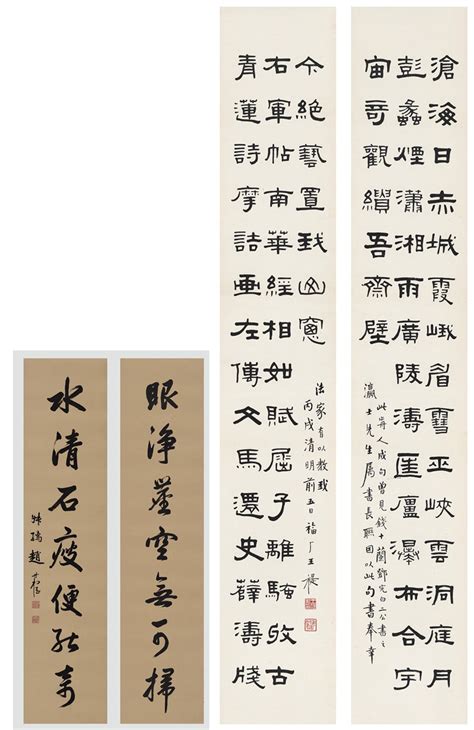 滄海日赤城霞峨眉雪巫峽雲洞庭月
彭蠡煙瀟湘雨廣陵濤匡廬瀑布合宇
宙奇觀繢吾齋壁
此前人成句曾見錢十蘭鄧完白二公書之
瀛士先生屬書長聯因以此句書奉幸
青蓮詩摩詰畫左傳文馬遷史薛濤牋
右軍帖南華經相如賦屈子離騷收古
今絕藝置我山窗
法家有以教我
丙戌清明前五日福厂王禔
眼淨塵空無可掃
水清石瘦便能奇
叔孺趙時棡